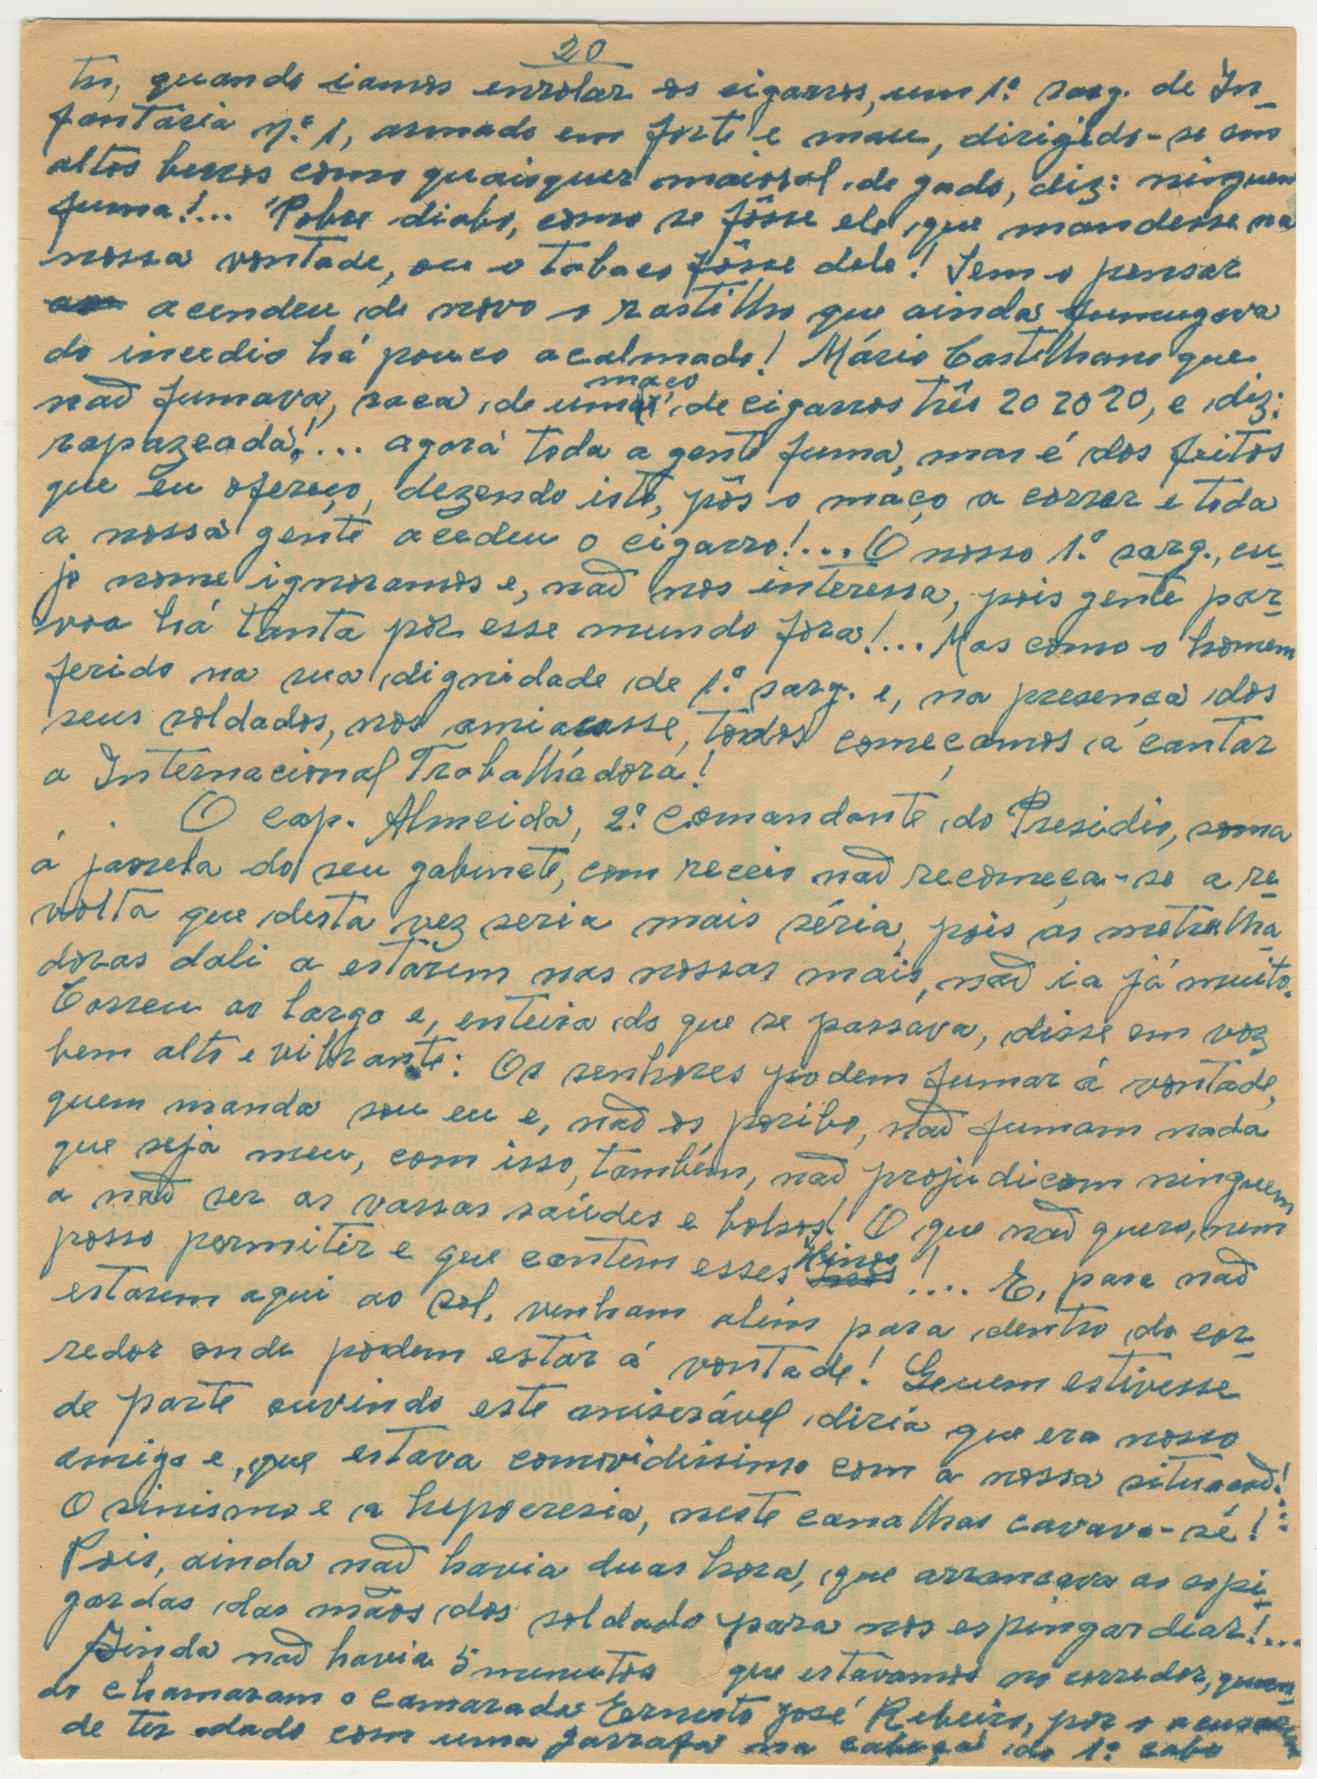 20
to, quando iamos enrolar os cigarros, um 1.º sarg. de In-
fantaria n.º 1, armado em forte e mau, dirigido-se em
altos berros como quaisquer maioral de gado, diz: ninguem
fuma!... Pobre diabo, como se fôsse ele que mandesse na
nossa vontade, ou o tabaco fôsse dele! Sem o pensar
acendeu de novo o rastilho que ainda fumugava
do incedio há pouco acalmado! Mário Castelhano que
não fumava, saca de um maço de cigarros três 20 20 20, e diz:
rapazeada!... agora toda a gente fuma, mas é dos feitos
que eu ofereço, dezendo isto, pôs o maço a correr e toda
a nossa gente acedeu o cigarro!... O nosso 1.º sarg., cu-
jo nome ignoramos e, não nos interessa, pois gente par-
voa há tanta por esse mundo fora!... Mas como o homem
ferido na sua dignidade de 1.º sarg. e, na presença dos
seus soldados, nos amiacasse, todos começamos a cantar
a Internacional Trabalhadora!
O cap. Almeida, 2.º Comandante do Presidio, soma
á janela do seu gabinete, com receio não recomeça-se a re-
volta que desta vez seria mais séria, pois as metralha
doras dali a estarem nas nossas mais, não ia já muito.
Correu ao largo e, enteira do que se passava, disse em voz
bem alto e vibrante: Os senhores podem fumar á vontade,
quem manda sou eu e, não os poribo, não fumam nada
que seja meu, com isso, também, não projudicom ninguem
a não ser as vassas saúdes e bolsos! O que não quero, nem
posso permitir e que cantem esses Hinos!.... E, para não
estarem aqui ao sol, venham além para dentro do cor-
redor onde podem estar á vontade! Quem estivesse
de parte ouvindo este miserável diria que era nosso
amigo e, que estava comovidissimo com a nossa situação!
O sinismo e a hipocresia, neste canalhas cavava-sé!..
Pois, ainda não havia duas hora, que arrancava as espi-
gardas das mãos dos soldado para nos espingardear!...
Ainda não havia 5 menutos que estavamos no corredor, quan-
do chamaram o camarada Ernesto José Ribeiro, por o acusarem
de ter dado com uma garrafa na cabeça do 1.º cabo